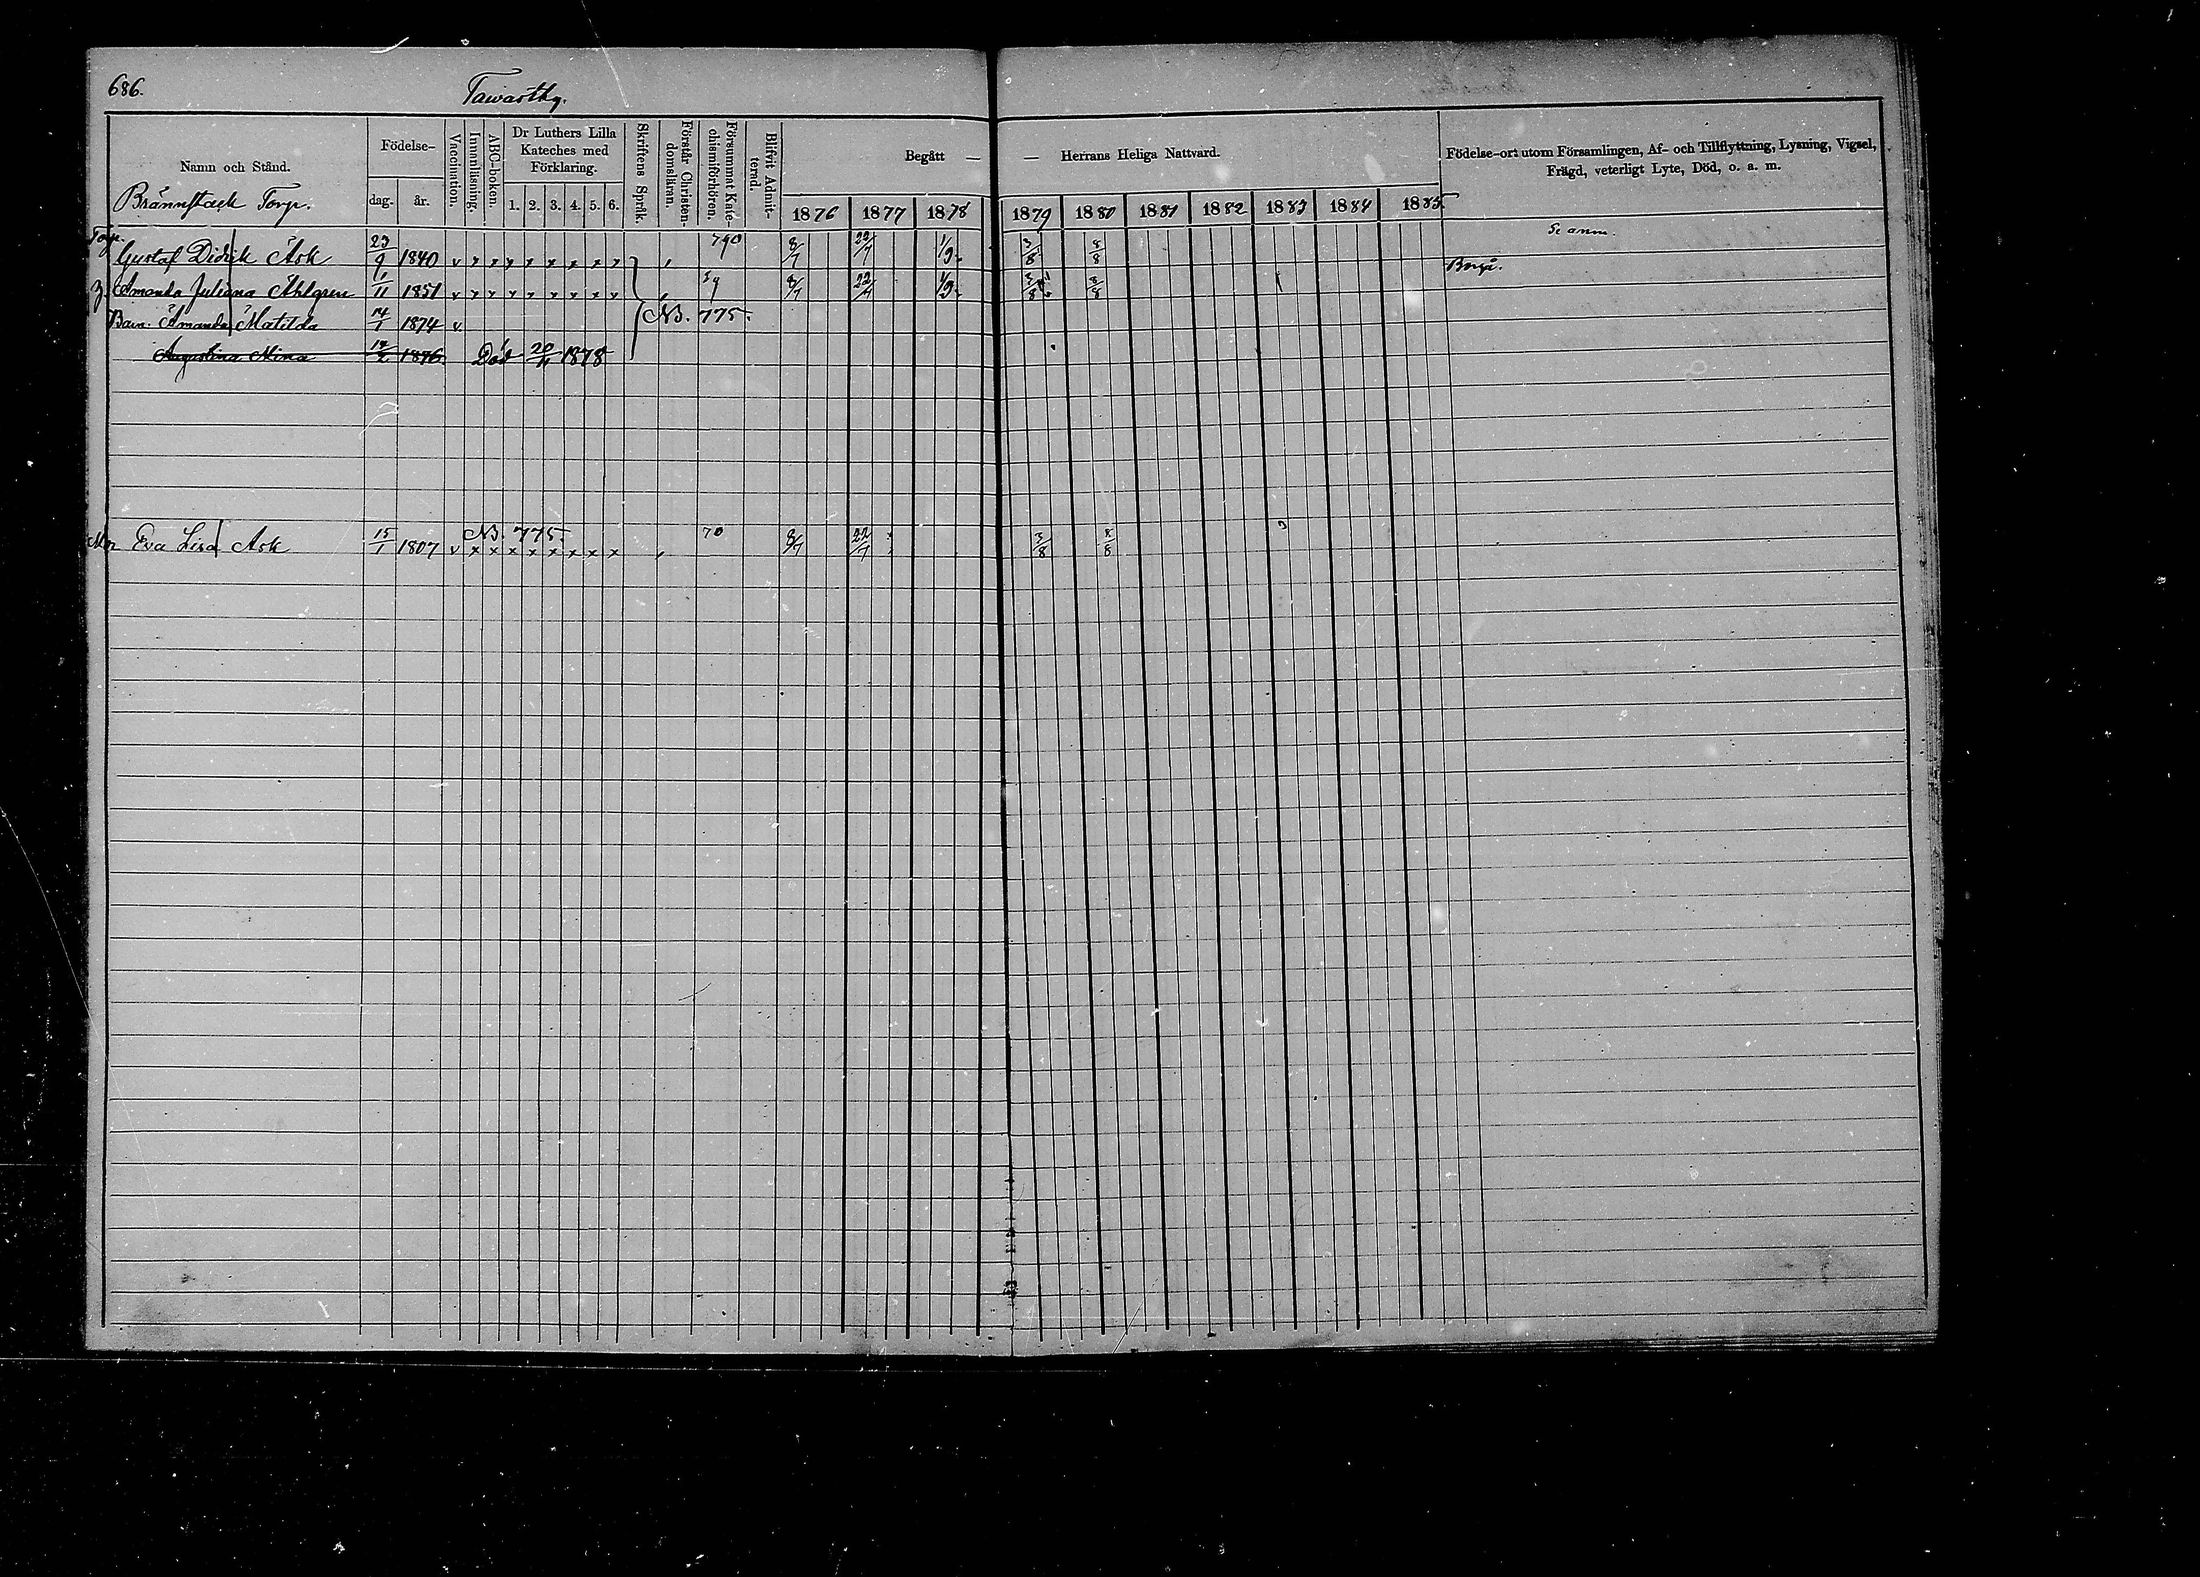 686.
Tawastby.
Namn och Stånd.
Födelse-
dag. år.
Vaccination.
Innanläsning.
ABC-boken.
Dr Luthers Lilla Kateches med Förklaring.
1. 2. 3. 4. 5. 6.
Skriftens Språk.
Förstår Christendomsläran.
Försummat Katechismiförhören.
Blifvit Admitterad.
Begått — — Herrans Heliga Nattvard.
1876 1877 1878 1879 1880 1881 1882 1883 1884 1885
Födelse-ort utom Församlingen, Af- och Tillflyttning, Lysning, Vigsel,
Frägd, veterligt Lyte, Död, o. a. m.
Brännstack Torp.
Se anm.
Torp. Gustaf Didrik Ask 23/9 1840 v x x x x x x x x 8/7 22/7 1/9 3/8 8/8
Amanda Juliana Åhlgren 1/11 1851 v x x x x x x x x 8/7 22/7 1/9 3/8 8/8 Borgå.
Barn. Amanda Matilda 14/1 1874 v NB. 775.
Augustina Mina 1876 Död 1878
NB. 775.
Eva Lisa Ask 15/1 1807 v x x x x x x x x 70 8/7 22/7 3/8 8/8